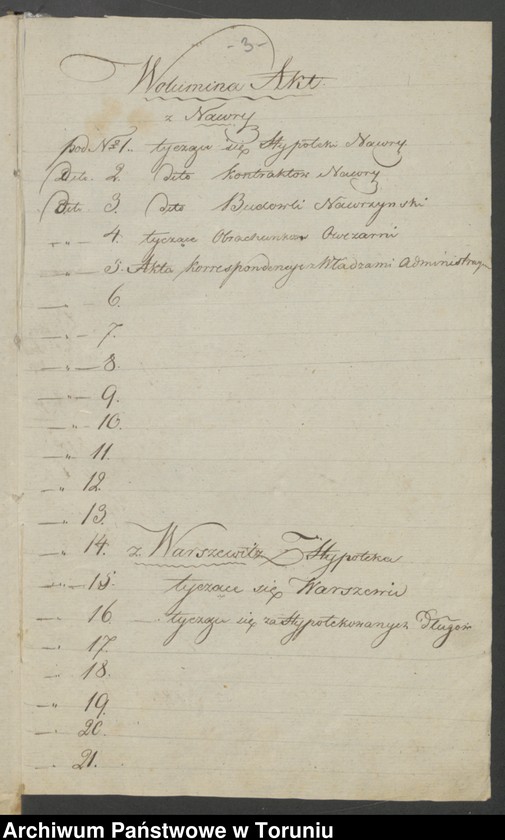 - 3 -
Wolumina Akt.
z Nawry
pod No 1. tyczące się Hypoteki Nawry
Dito. 2. dito kontraktów Nawry
Dito. 3. dito Budowli Nawrzyński
— „ — 4. tyczące Obrachunków Owczarni
— „ — 5. Akta korrespondencyi z Władzami Administracy
— 6.
— „ — 7.
— „ — 8.
— „ — 9.
— „ 10.
— „ 11.
— „ 12.
— 13.
— „ 14. z Warszewitz Hypoteka
— „ — 15. tyczące się Warszewic
— „ 16. tyczące się zahypotekowanych Długów
— „ 17.
— „ 18.
— „ 19.
— „ 20.
— „ 21.
Archiwum Państwowe w Toruniu